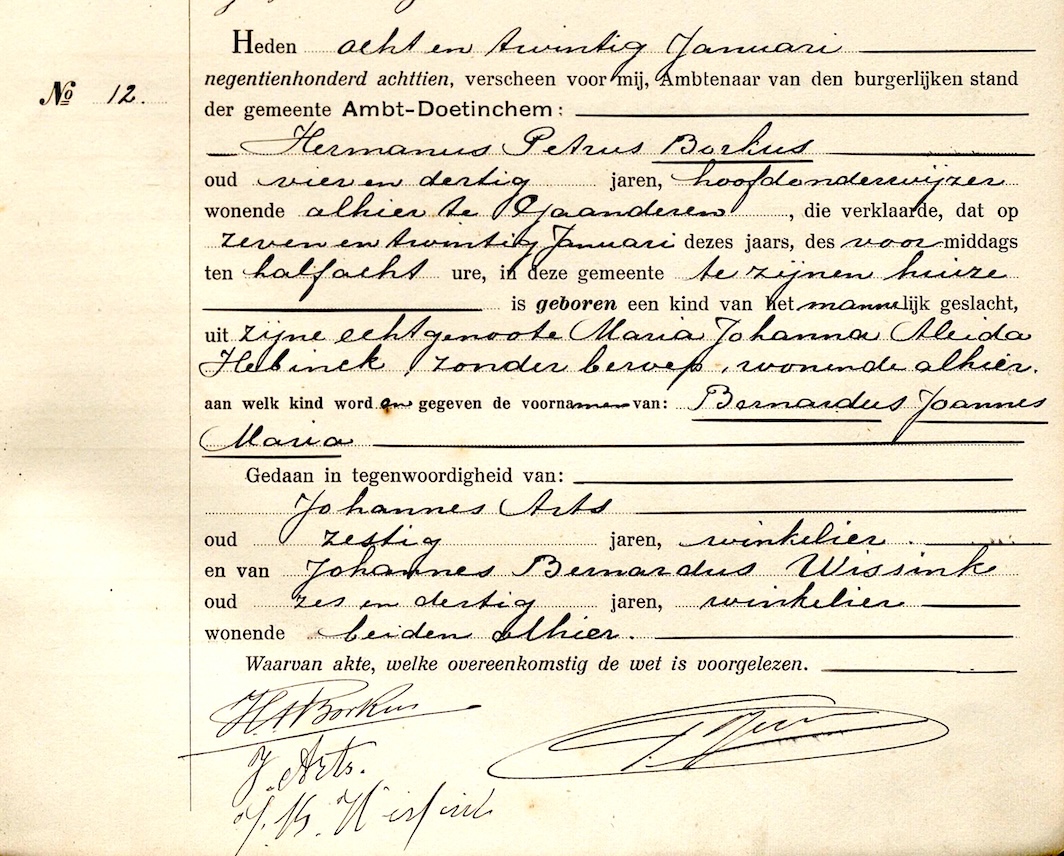 Heden acht en twintig Januari
negentienhonderd achttien, verscheen voor mij, Ambtenaar van den burgerlijken stand
№ 12.
der gemeente Ambt-Doetinchem:
Hermanus Petrus Borkus
oud vier en dertig jaren, hoofdonderwijzer
wonende alhier te Gaanderen, die verklaarde, dat op
zeven en twintig Januari dezes jaars, des voormiddags
ten halfacht ure, in deze gemeente te zijnen huize
is geboren een kind van het mannelijk geslacht,
uit zijne echtgenoote Maria Johanna Aleida
Hebinck, zonder beroep, wonende alhier.
aan welk kind worden gegeven de voornamen van: Bernardus Joannes
Maria
Gedaan in tegenwoordigheid van:
Johannes Arts
oud zestig jaren, winkelier
en van Johannes Bernardus Wissink
oud zes en dertig jaren, winkelier
wonende beiden alhier.
Waarvan akte, welke overeenkomstig de wet is voorgelezen.
H.P. Borkus
J. Arts.
J. B. Wissink